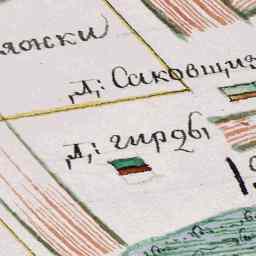 яожки
д: Саковщиз
д: гирды